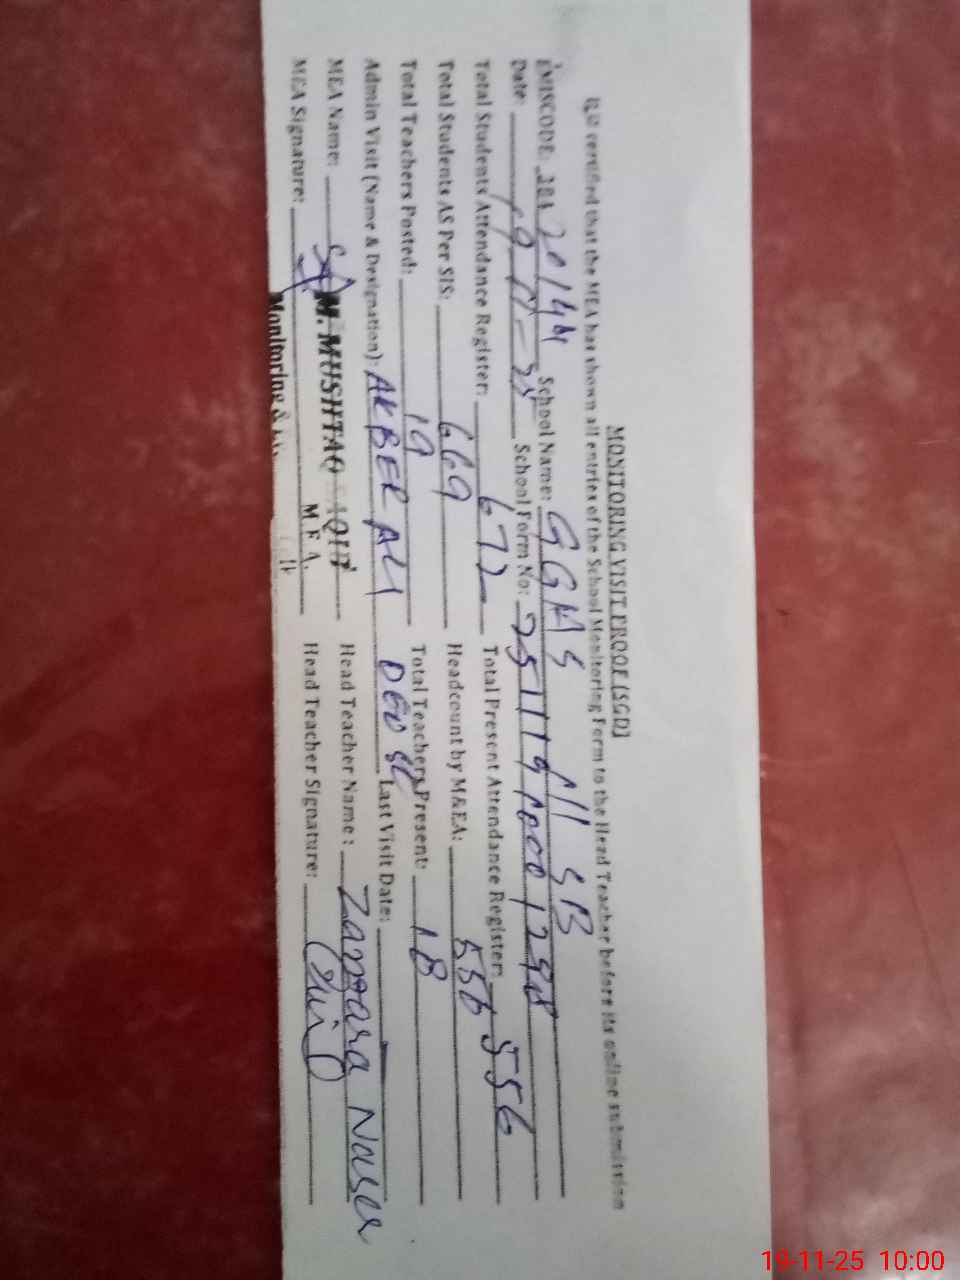 MONITORING VISIT PROOF [SGD]
It is certified that the MEA has shown all entries of the School Monitoring Form to the Head Teacher before its online submission
EMISCODE: 384 20144 School Name: GGHS 111 SB
Date: 19-11-25 School Form No:
Total Students Attendance Register: 672 Total Present Attendance Register: 556
Total Students AS Per SIS: 669 Headcount by M&EA: 556
Total Teachers Posted: 19 Total Teachers Present: 18
Admin Visit (Name & Designation): AKBER ALI DEO SE Last Visit Date:
MEA Name: M. MUSHTAQ Head Teacher Name:
M.E.A.
MEA Signature: Monitoring & Head Teacher Signature:
19-11-25 10:00